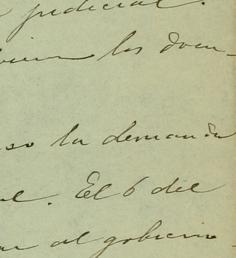 judicial.
los docu-
so la demanda
El 6 del
al gobierno